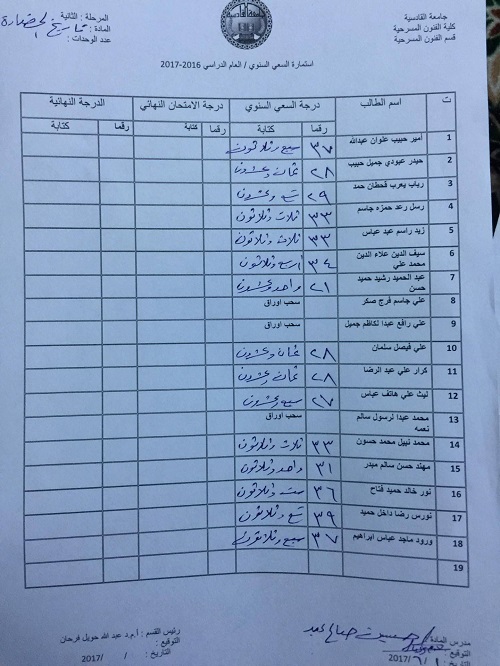 جامعة القادسية
كلية الفنون المسرحية
قسم الفنون المسرحية
المرحلة : الثانية
المادة : تاريخ الحضارة
عدد الوحدات :
استمارة السعي السنوي / العام الدراسي 2016-2017
ت اسم الطالب درجة السعي السنوي درجة الامتحان النهائي الدرجة النهائية
رقما كتابة رقما كتابة رقما كتابة
1 أمير حبيب علوان عبدالله ٣٧ سبع وثلاثون
2 حيدر عبودي جميل حبيب ٢٨ ثمان وعشرون
3 رباب يعرب قحطان حمد ٢٩ تسع وعشرون
4 رسل رعد حمزه جاسم ٣٣ ثلاث وثلاثون
5 زيد راسم عبد عباس ٣٣ ثلاث وثلاثون
6 سيف الدين علاء الدين محمد علي ٣٤ أربع وثلاثون
7 عبد الحميد رشيد حميد حسن ٢١ واحد وعشرون
8 علي جاسم فرج صكر سحب اوراق
9 علي رافع عبدا لكاظم جميل سحب اوراق
10 علي فيصل سلمان ٢٨ ثمان وعشرون
11 كرار علي عبد الرضا ٢٨ ثمان وعشرون
12 ليث علي هاتف عباس ٢٧ سبع وعشرون
13 محمد عبدا لرسول سالم نعمه سحب اوراق
14 محمد نبيل محمد حسون ٣٣ ثلاث وثلاثون
15 مهند حسن سالم مبدر ٣١ واحد وثلاثون
16 نور خالد حميد فتاح ٣٦ ست وثلاثون
17 نورس رضا داخل حميد ٣٩ تسع وثلاثون
18 ورود ماجد عباس ابراهيم ٣٧ سبع وثلاثون
19
مدرس المادة :
التوقيع :
التاريخ : /2017
رئيس القسم : أ.م.د عبد الله حويل فرحان
التوقيع :
التاريخ : / /2017